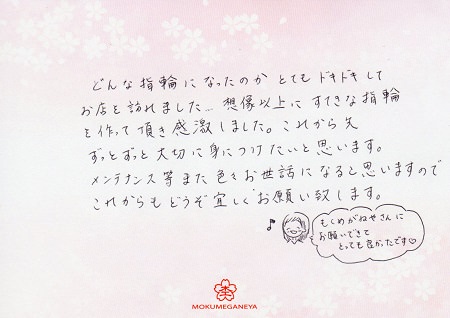 どんな指輪になったのか とてもドキドキして
お店を訪れました… 想像以上にすてきな指輪
を作って頂き感激しました。これから先
ずっとずっと大切に身につけたいと思います。
メンテナンス等また色々お世話になると思いますので
これからもどうぞ宜しくお願い致します。
もくめがねやさんに
お願いできて
とっても良かったです♡
MOKUMEGANEYA